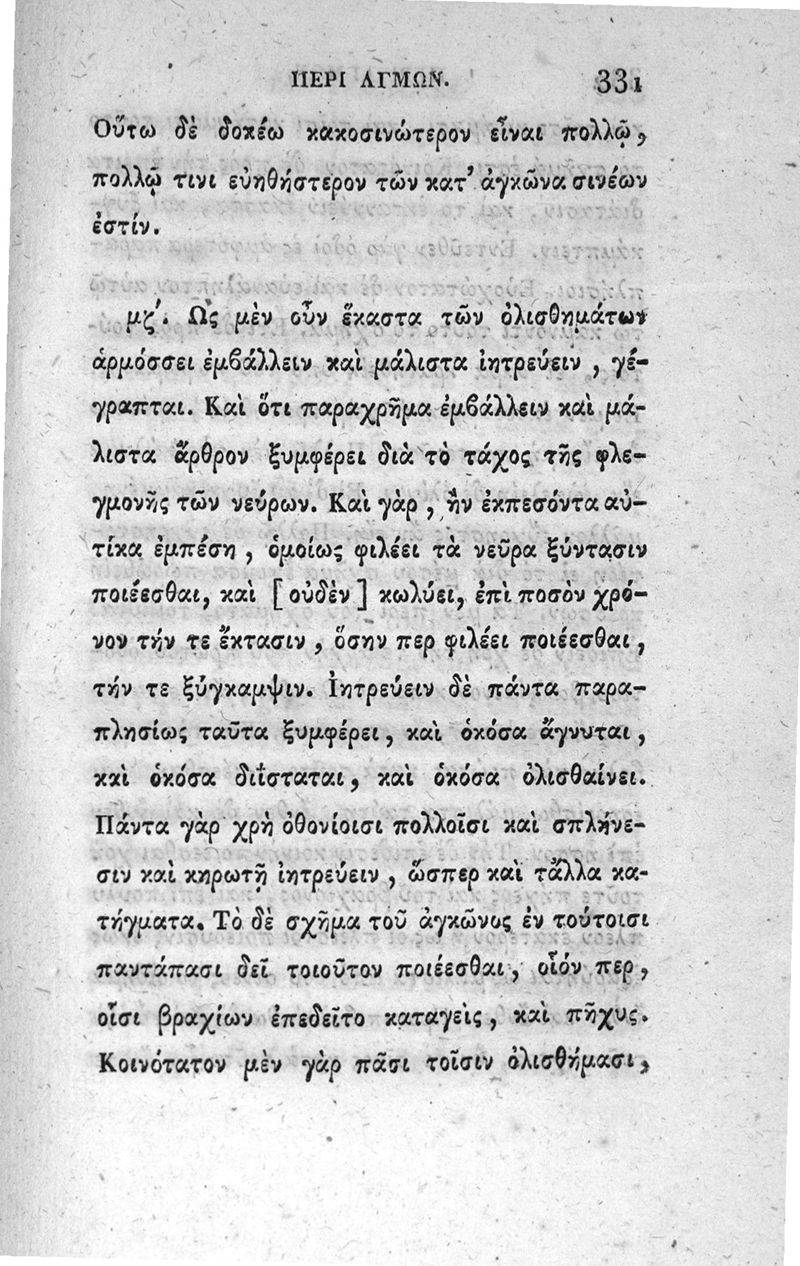 ΠΕΡΙ ΑΓΜΩΝ. 331
Οὕτω δὲ δοκέω κακοσινώτερον εἶναι πολλῷ,
πολλῷ τινι εὐηθήστερον τῶν κατ' ἀγκῶνα σινέων
ἐστίν.
μζ'. Ὡς μὲν οὖν ἕκαστα τῶν ὀλισθημάτων
ἁρμόσσει ἐμβάλλειν καὶ μάλιστα ἰητρεύειν, γέ-
γραπται. Καὶ ὅτι παραχρῆμα ἐμβάλλειν καὶ μά-
λιστα ἄρθρον ξυμφέρει διὰ τὸ τάχος τῆς φλε-
γμονῆς τῶν νεύρων. Καὶ γὰρ, ἢν ἐκπεσόντα αὐ-
τίκα ἐμπέσῃ, ὁμοίως φιλέει τὰ νεῦρα ξύντασιν
ποιέεσθαι, καὶ [οὐδὲν] κωλύει, ἐπὶ ποσὸν χρό-
νον τήν τε ἔκτασιν, ὅσην περ φιλέει ποιέεσθαι,
τήν τε ξύγκαμψιν. Ἰητρεύειν δὲ πάντα παρα-
πλησίως ταῦτα ξυμφέρει, καὶ ὁκόσα ἄγνυται,
καὶ ὁκόσα διΐσταται, καὶ ὁκόσα ὀλισθαίνει.
Πάντα γὰρ χρὴ ὀθονίοισι πολλοῖσι καὶ σπλήνε-
σιν καὶ κηρωτῇ ἰητρεύειν, ὥσπερ καὶ τἄλλα κα-
τήγματα. Τὸ δὲ σχῆμα τοῦ ἀγκῶνος ἐν τούτοισι
παντάπασι δεῖ τοιοῦτον ποιέεσθαι, οἷόν περ,
οἷσι βραχίων ἐπεδεῖτο καταγεὶς, καὶ πῆχυς.
Κοινότατον μὲν γὰρ πᾶσι τοῖσιν ὀλισθήμασι,